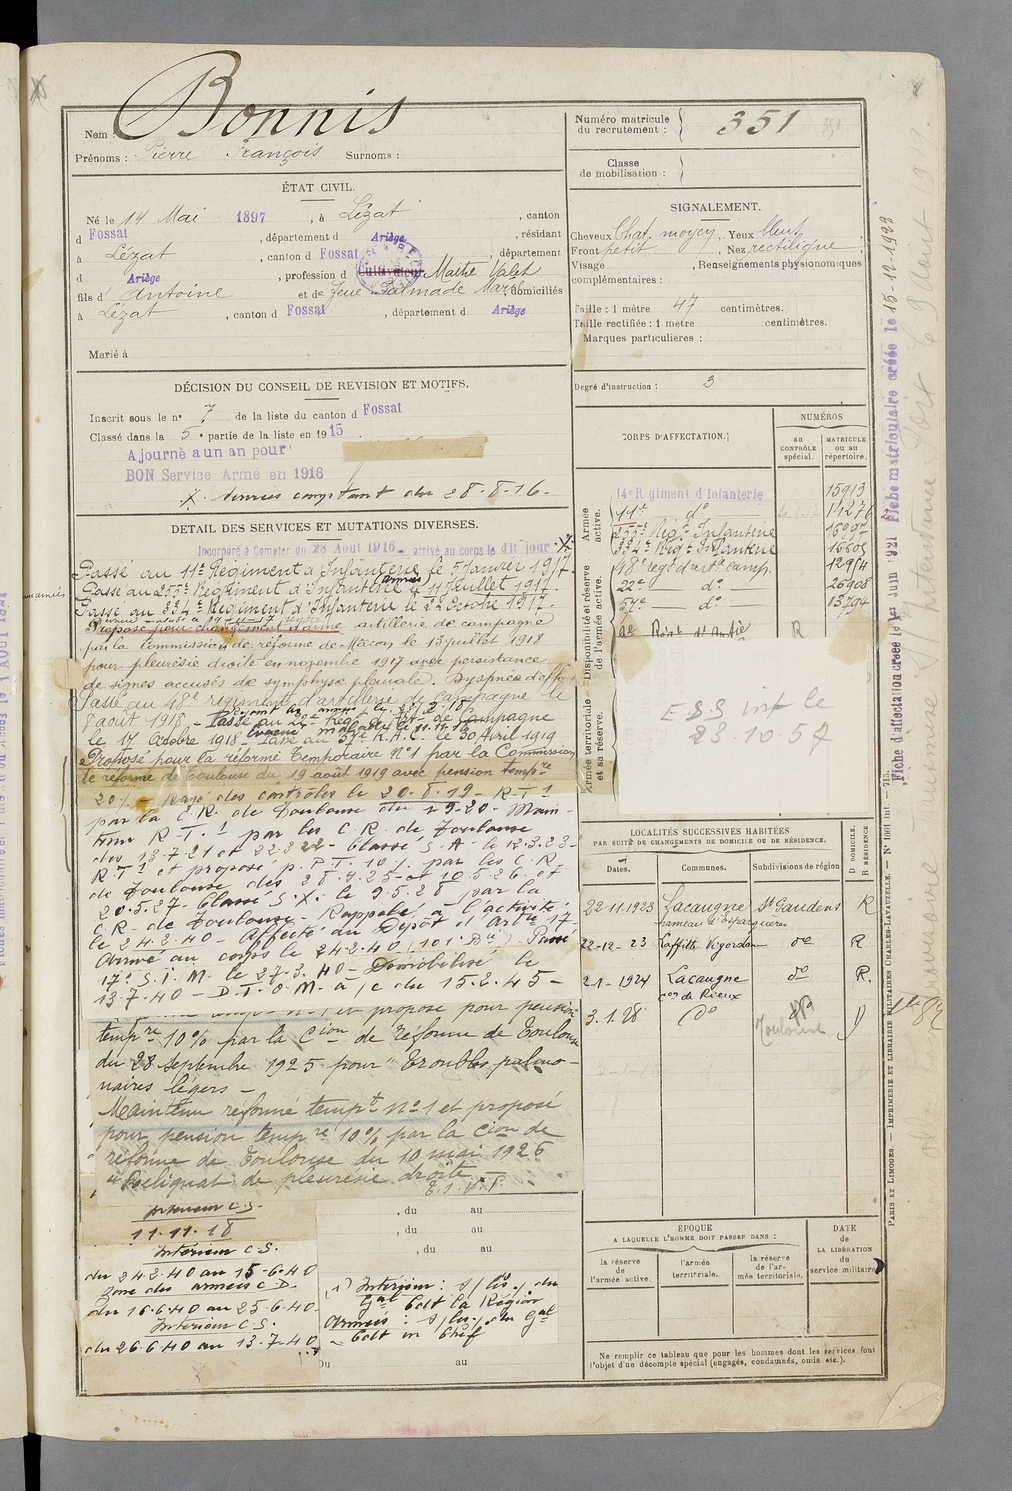 Nom : Bonnis
Prénoms : Pierre François Surnoms :
Numéro matricule du recrutement : 351
Classe de mobilisation :
ÉTAT CIVIL.
Né le 14 Mai 1897, à Lézat, canton
d Fossat, département d Ariège, résidant
à Lézat, canton d Fossat, département
d Ariège, profession d Cultivateur Maître Valet
fils d Antoine et de feue Palmade domiciliés
à Lézat, canton d Fossat, département d Ariège
Marié à
SIGNALEMENT.
Cheveux Chat. moyen, Yeux bleus,
Front petit, Nez rectiligne,
Visage , Renseignements physionomiques
complémentaires :
Taille : 1 mètre 47 centimètres.
Taille rectifiée : 1 mètre centimètres.
Marques particulières :
Degré d'instruction : 3
DÉCISION DU CONSEIL DE REVISION ET MOTIFS.
Inscrit sous le n° 7 de la liste du canton d Fossat
Classé dans la 5e partie de la liste en 1915
Ajourné a un an pour
BON Service Armé en 1916
comptant du 28.8.16.
DETAIL DES SERVICES ET MUTATIONS DIVERSES.
Incorporé à Compter du 28 Aout 1916, arrivé au corps le dit jour
Passé au 11e Régiment d'Infanterie le 5 Janvier 1917.
Passé au 255e Régiment d'Infanterie le 11 Juillet 1917.
Passé au 334e Régiment d'Infanterie le 22 Octobre 1917.
Proposé pour changement d'arme artillerie de campagne
par la Commission de réforme de Mâcon le 13 juillet 1918
pour pleurésie droite en novembre 1917 avec persistance
de signes accusés de symphyse pleurale. Dyspnée d'eff
Passé au 48e régiment d'artillerie de campagne le
8 août 1918 - Passé au 22e Régt d'Art. de Campagne
le 17 Octobre 1918 - Passé au 57e R.A.C. le 30 Avril 1919
Proposé pour la réforme temporaire N°1 par la Commission
de réforme de Toulouse du 19 août 1919 avec pension tempre
20% - Rayé des contrôles le 20.8.19 - R.T 1
par la C.R. de Toulouse du 1 9.20 - Main-
tenu R.T. 1 par les C.R. de Toulouse
des 13.7.21 et 22.3.22 - Classé S.A. le 12.3.23-
R.T 1 et proposé p. P.T. 10% par les C.R.
de Toulouse des 28.9.25 et 10.5.26 et
20.5.27. Classé S.X. le 9.5.28 par la
C.R. de Toulouse - Rappelé à l'activité
le 24.2.40 - Affecté au Dépôt d'Artie 17
Arrivé au corps le 24.2.40 (101e Bie) - Passé
17e S.I.M. le 27.3.40 - Démobilisé le
13.7.40 - D.T.O.M. a/c du 15.2.45 -
et proposé pour pension
tempre 10% par la Cion de réforme de Toulouse
du 28 septembre 1925 pour "Troubles pulmo-
naires légers -
Maintenu réformé tempt n°1 et proposé
pour pension tempre 10% par la Cion de
réforme de Toulouse du 10 mai 1926
"Reliquat de pleurésie droite
, du au
, du au
, du au
Intérieur C.S.
11.11.18
Intérieur C.S.
du 24.2.40 au 15.6.40
Zone des armées C.D.
du 16.6.40 au 25.6.40
Intérieur C.S.
du 26.6.40 au 13.7.40
Intérieur : du
Gal Cdt la Région
Armées : du Gal
Cdt en Chef
Du au
CORPS D'AFFECTATION.
NUMÉROS
au CONTRÔLE spécial.
MATRICULE ou au répertoire.
Armée active.
Disponibilité et réserve de l'armée active.
Armée territoriale et sa réserve.
14e Régiment d'Infanterie 15913
11e do 14276
255e Régt Infanterie 16997
334e Régt Infanterie 16605
48e Régt d'artie camp. 12914
22e do 26908
57e do 13794
R
23.10.57
LOCALITÉS SUCCESSIVES HABITÉES
PAR SUITE DE CHANGEMENTS DE DOMICILE OU DE RÉSIDENCE.
Dates. Communes. Subdivisions de région D DOMICILE. R RÉSIDENCE
22-11.1923 Lacaugne St Gaudens R
22-12-23 Laffitte Vigordane do R
2-1-1924 Lacaugne do R.
con de Rieux
3.1.28 do Toulouse D
ÉPOQUE
A LAQUELLE L'HOMME DOIT PASSER DANS :
la réserve de l'armée active.
l'armée territoriale.
la réserve de l'armée territoriale.
DATE de LA LIBÉRATION du service militaire
Ne remplir ce tableau que pour les hommes dont les services font
l'objet d'un décompte spécial (engagés, condamnés, omis, etc.).
Fiche matriculaire créée le 15-12-1923
PARIS ET LIMOGES. — IMPRIMERIE ET LIBRAIRIE MILITAIRES CHARLES-LAVAUZELLE.